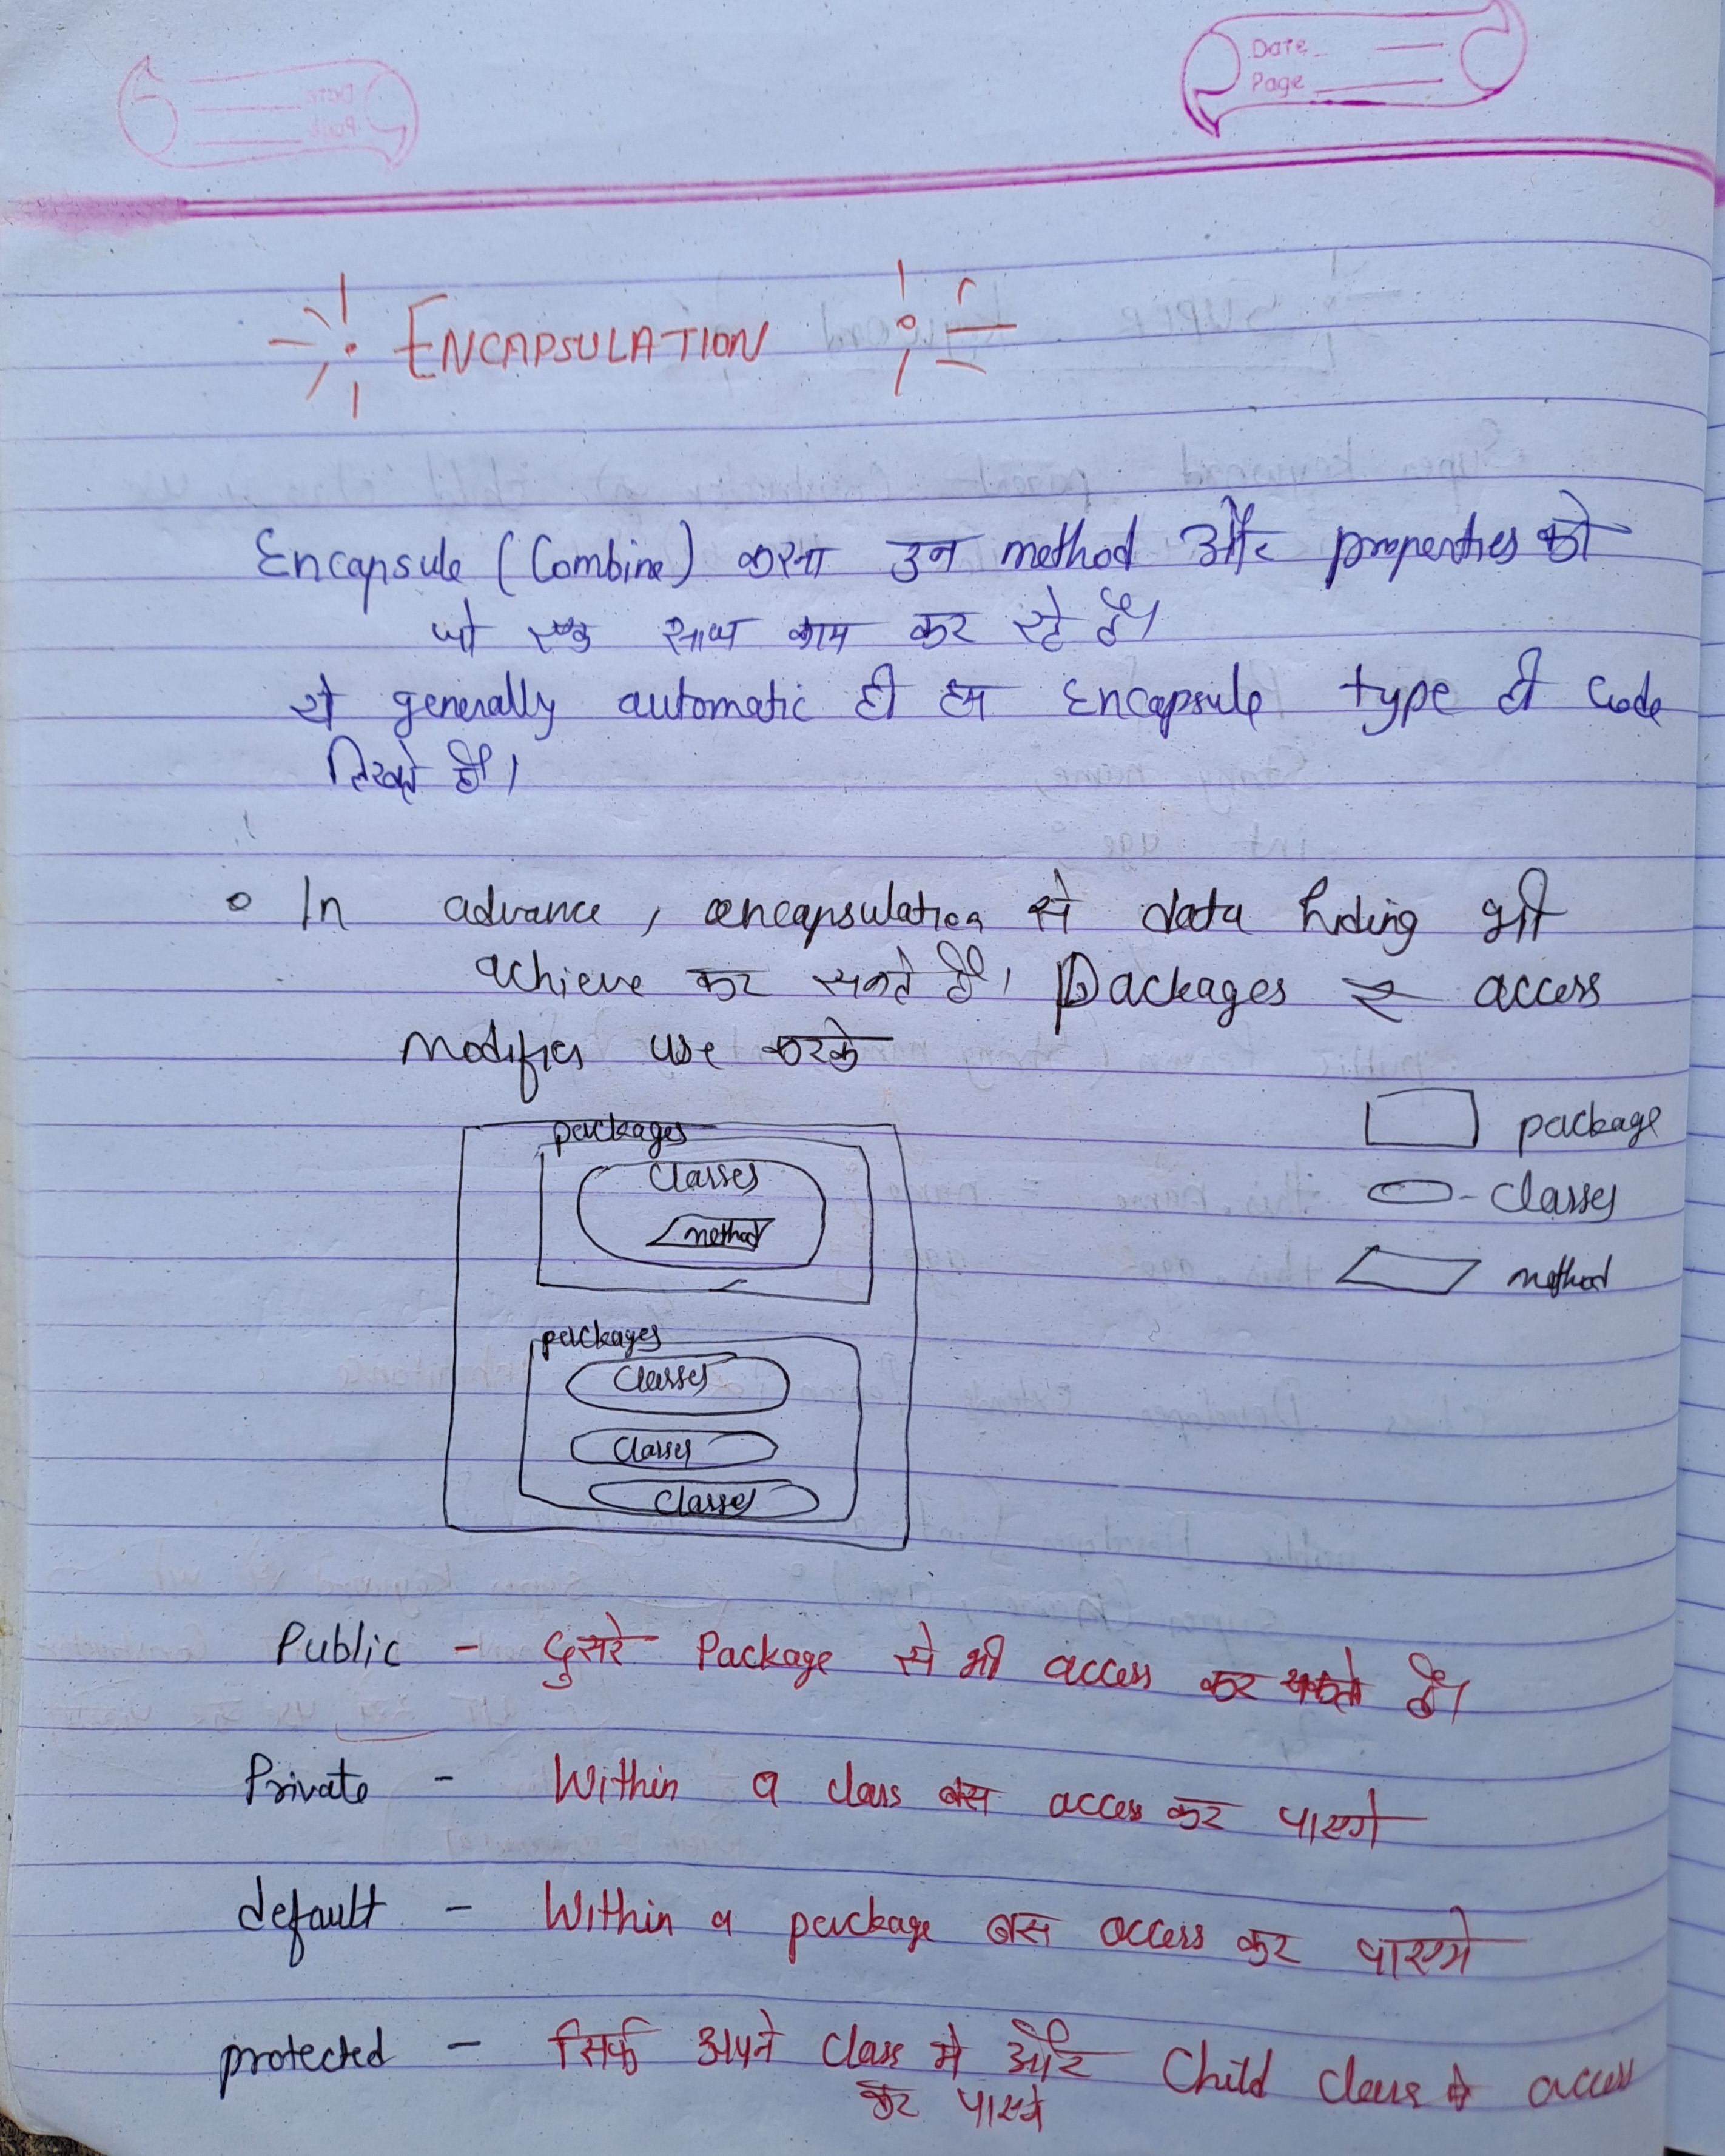 Date
Page
ENCAPSULATION
Encapsule (Combine) करना उन method और properties को
जो एक साथ काम कर रहे है।
ये generally automatic ही हम Encapsule type ही Code
लिखते है।
In advance, encapsulation से data hiding भी
achieve कर सकते है। Packages & access
modifies use करके
packages
Classes
method
package
classes
method
packages
Classes
Classes
Classes
Public - दुसरे Package से भी access कर सकते है।
Private - Within a class बस access कर पाएगे
default - Within a package बस access कर पाएगे
protected - सिर्फ अपने class मे और Child class मे access
कर पाएगे